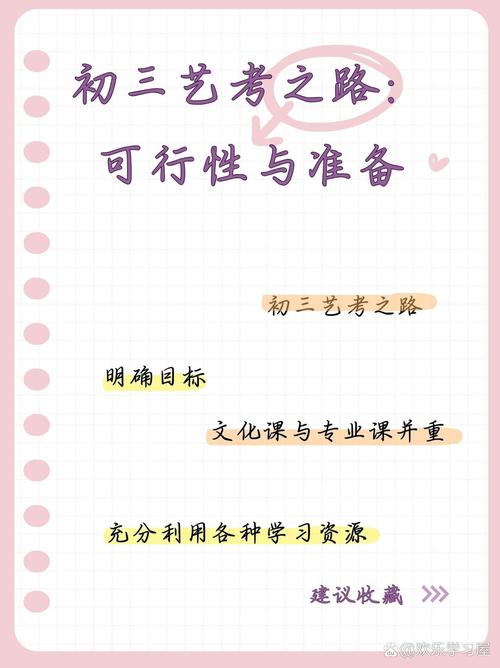 初三艺考之路:
可行性与准备
初三艺考之路
明确目标
文化课与专业课并重
充分利用各种学习资源
建议收藏 >>>
@欢乐学习屋